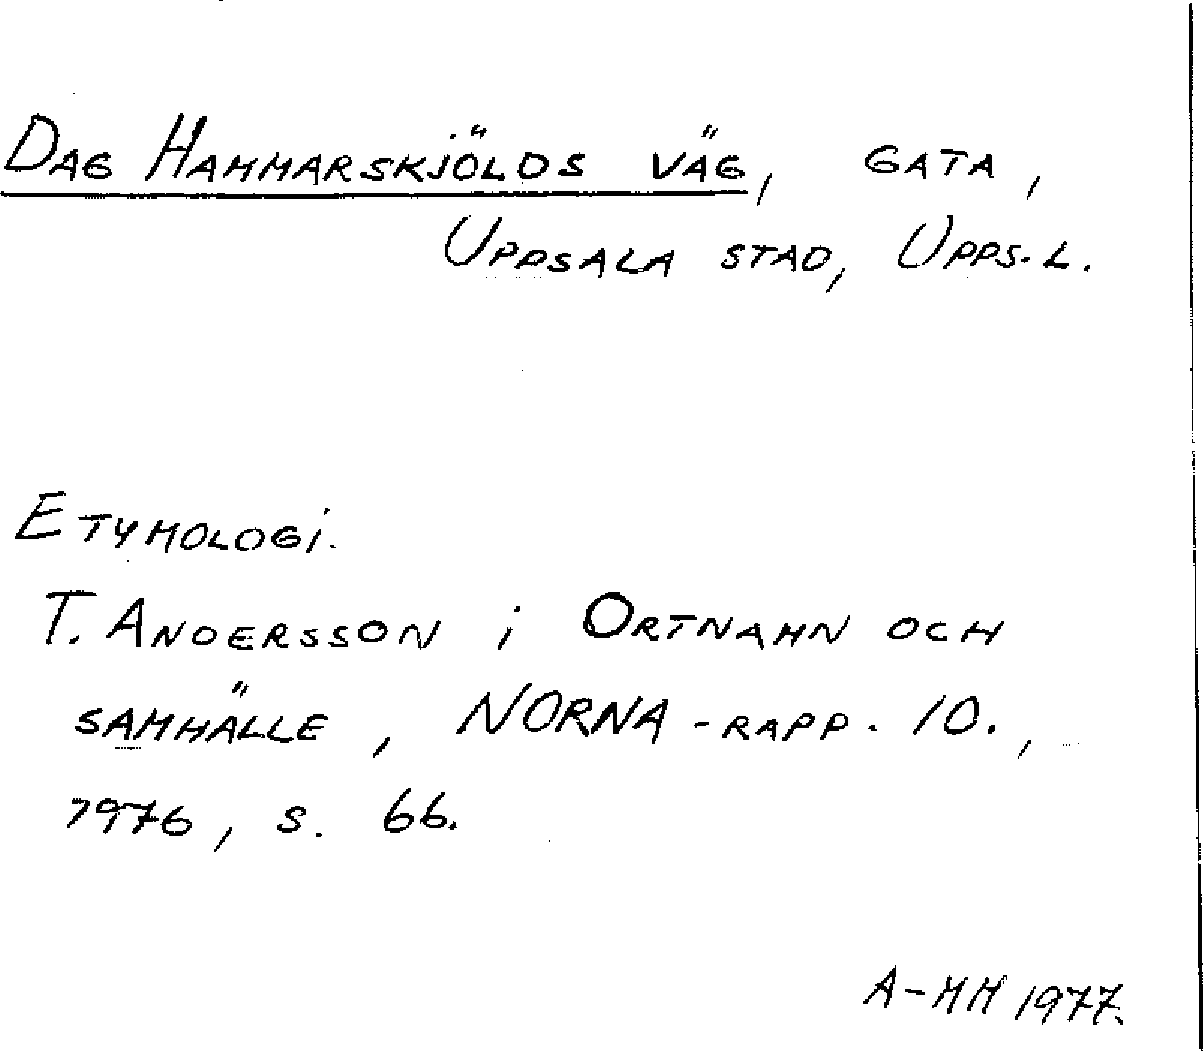 DAG HAMMARSKJÖLDS VÄG, GATA,
UPPSALA STAD, UPPS. L.
ETYMOLOGI.
T. ANDERSSON i ORTNAMN OCH
SAMHÄLLE, NORNA-RAPP. 10.,
1976, S. 66.
A-MM 1977.